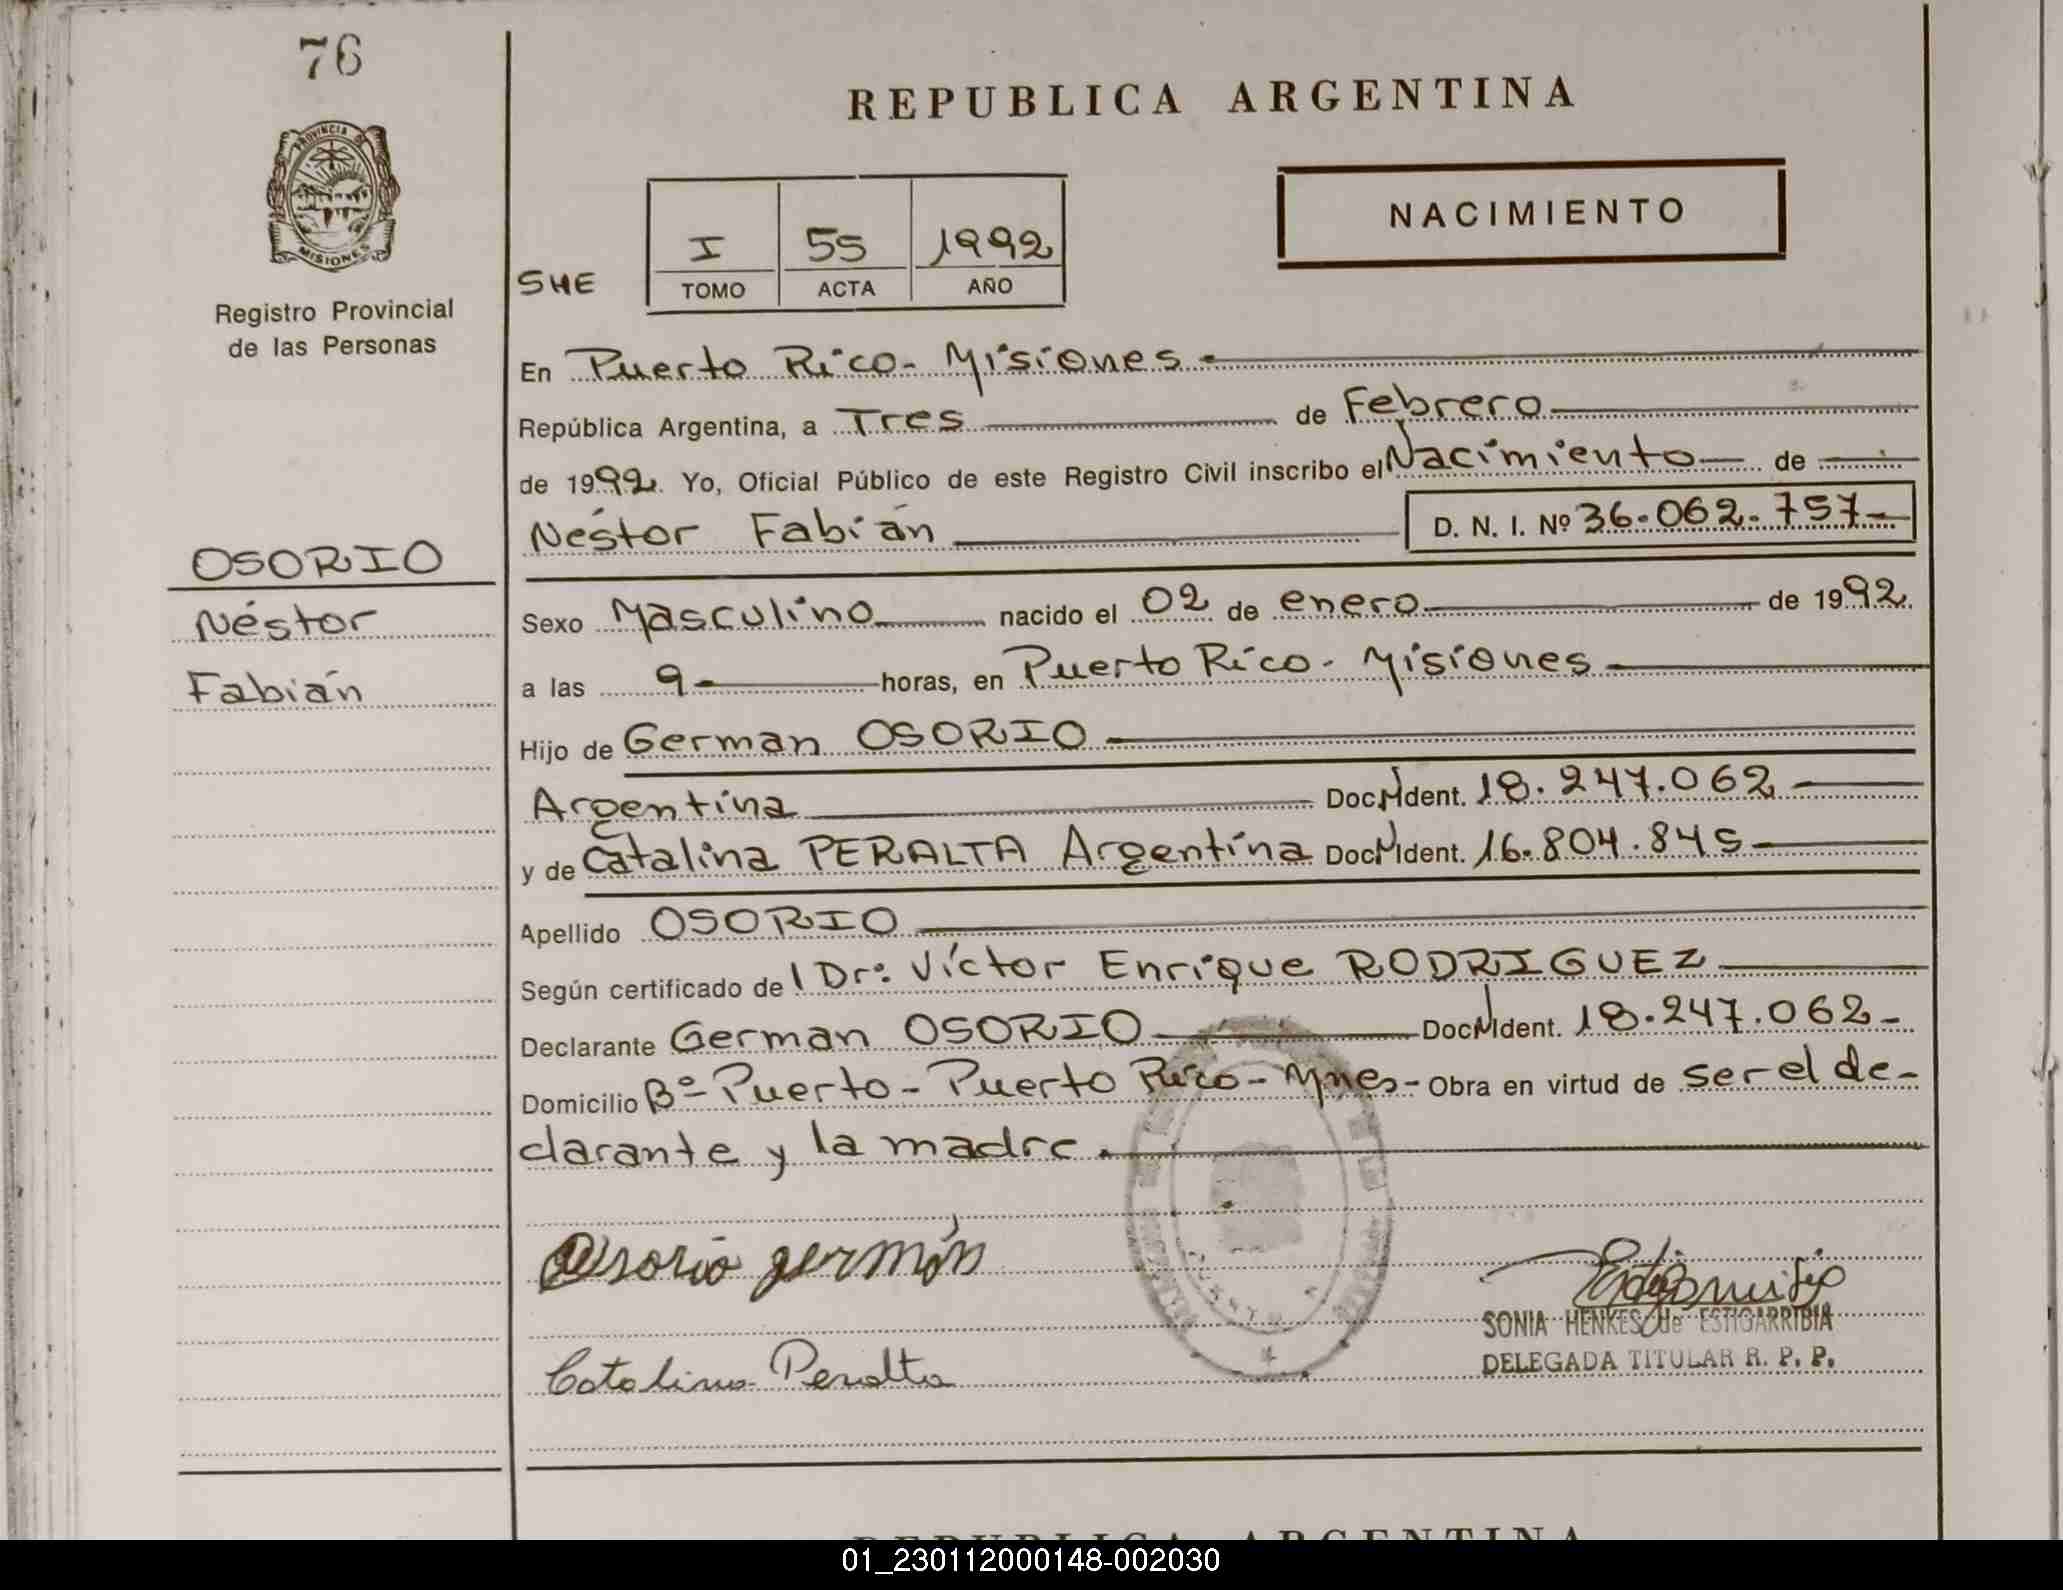 76
PROVINCIA DE
MISIONES
Registro Provincial
de las Personas
OSORIO
Néstor
Fabián
REPUBLICA ARGENTINA
NACIMIENTO
SHE
I 55 1992
TOMO ACTA AÑO
En Puerto Rico - Misiones.-
República Argentina, a Tres de Febrero
de 1992. Yo, Oficial Público de este Registro Civil inscribo el Nacimiento de
Néstor Fabián D. N. I. Nº 36.062.757-
Sexo Masculino nacido el 02 de enero de 1992.
a las 9- horas, en Puerto Rico - Misiones
Hijo de German OSORIO
Argentina Doc.N Ident. 18.247.062
y de Catalina PERALTA Argentina Doc.N Ident. 16.804.845
Apellido OSORIO
Según certificado de l Dr: Víctor Enrique RODRIGUEZ
Declarante German OSORIO Doc.N Ident. 18.247.062-
Domicilio Bº Puerto - Puerto Rico - Mnes - Obra en virtud de ser el de-
clarante y la madre.
Osorio germán
Catalina Peralta
SONIA HENKES de ESTIGARRIBIA
DELEGADA TITULAR R. P. P.
REPUBLICA ARGENTINA
01_230112000148-002030